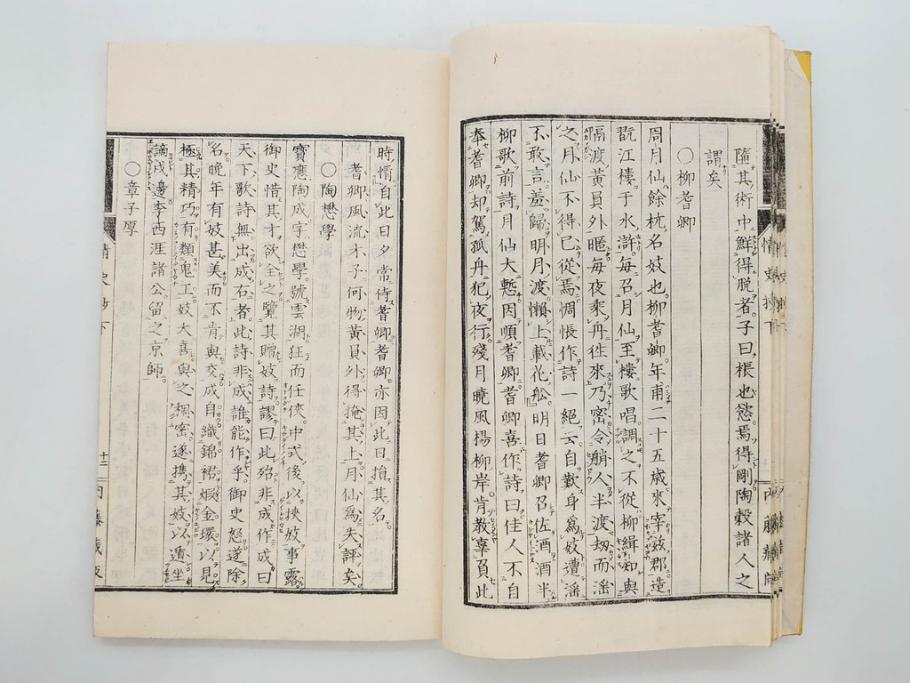 隨其術中鮮得脱者子曰棖也慾焉得剛陶穀諸人之
謂矣
〇柳耆卿
周月仙餘杭名妓也柳耆卿年甫二十五歳來宰茲郡造
翫江樓于水滸毎召月仙至樓歌唱調之不從柳緝知與
隔渡黃員外暱毎夜乘舟徃來乃密令艄人半渡刼而淫
之月仙不得已從焉惆悵作詩一絶云自歎身爲妓遭淫
不敢言羞歸明月渡懶上載花舩明日耆卿召佐酒酒半
柳歌前詩月仙大慙因順耆卿耆卿喜作詩曰佳人不自
奉耆卿却駕孤舟犯夜行殘月曉風楊柳岸肯教辜負此
時情自此日夕常侍耆卿耆卿亦因此日損其名
耆卿風流才子何物黃員外得掩其上月仙爲失評矣
〇陶懋學
寶應陶成字懋學號雲湖狂而任俠中式後以挾妓事露
御史惜其才欲全之覽其贈妓詩謬曰此殆非成作成曰
天下歌詩無出成右者此詩非成誰能作乎御史怒遂除
名晩年有妓甚美而不肯與交成自織錦裙煅金環以見
極其精巧有類鬼工妓大喜與之稠密遂携其妓以遁坐
謫戍邊李西涯諸公留之京師
〇章子厚
情史抄下
十三